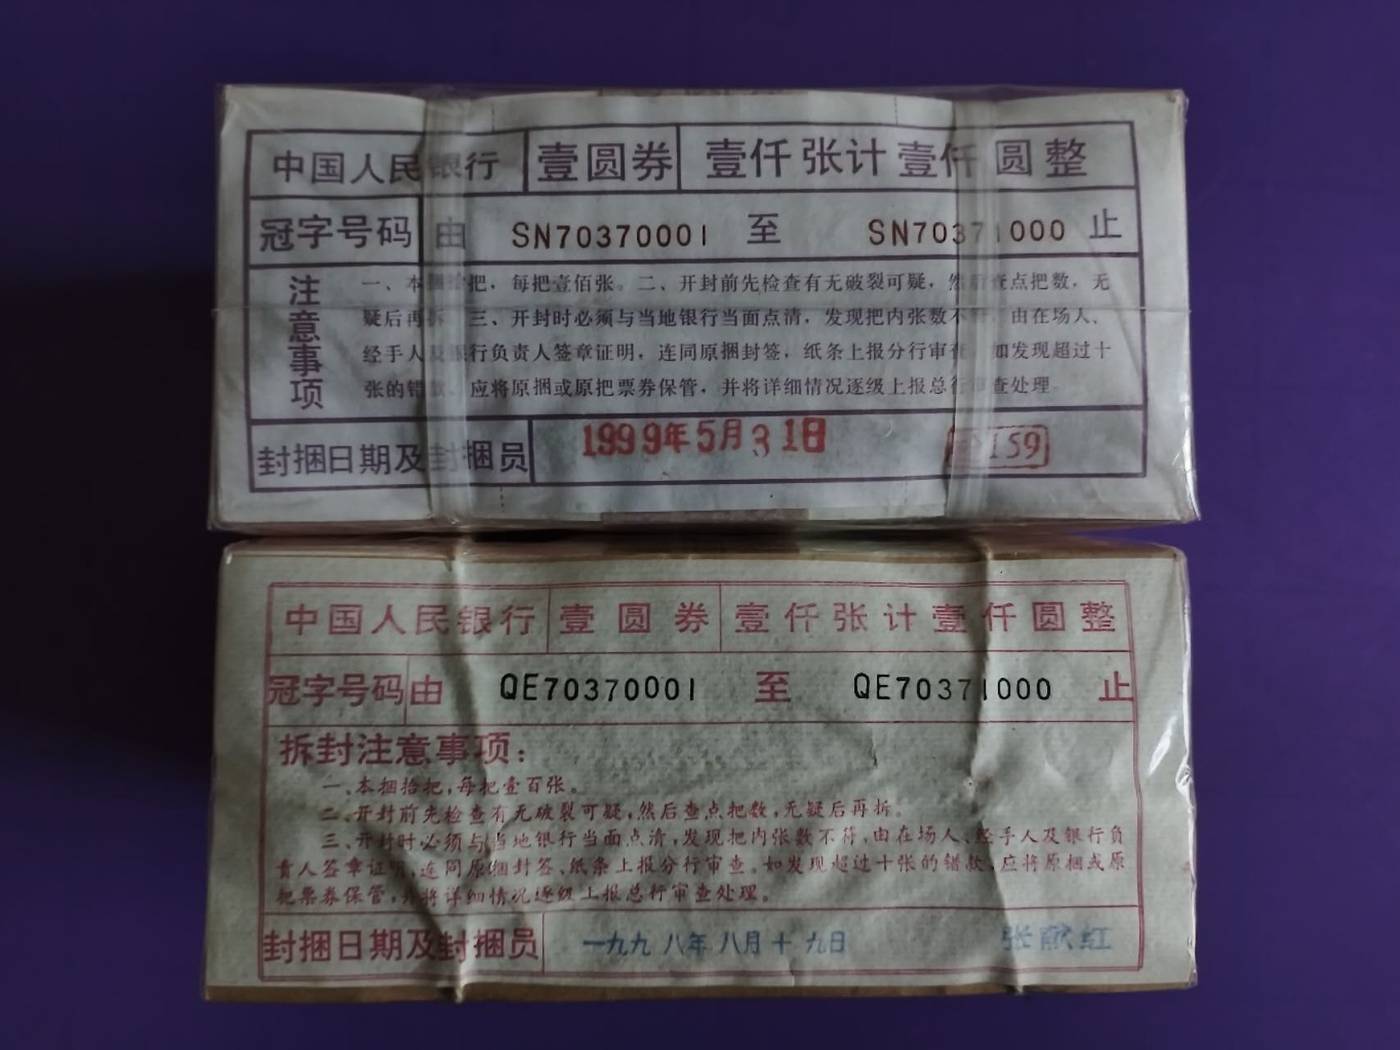 中国人民银行 壹圆券 壹仟张计壹仟圆整
冠字号码 由 SN70370001 至 SN70371000 止
注意事项
一、本捆拾把，每把壹佰张。二、开封前先检查有无破裂可疑，然后查点把数，无
疑后再拆。三、开封时必须与当地银行当面点清，发现把内张数不符，由在场人、
经手人及银行负责人签章证明，连同原捆封签，纸条上报分行审查。如发现超过十
张的错款，应将原捆或原把票券保管，并将详细情况逐级上报总行审查处理。
封捆日期及封捆员 1999年5月31日 159
中国人民银行 壹圆券 壹仟张计壹仟圆整
冠字号码 由 QE70370001 至 QE70371000 止
拆封注意事项：
一、本捆拾把，每把壹百张。
二、开封前先检查有无破裂可疑，然后查点把数，无疑后再拆。
三、开封时必须与当地银行当面点清，发现把内张数不符，由在场人、经手人及银行负
责人签章证明，连同原捆封签、纸条上报分行审查。如发现超过十张的错款，应将原捆或原
把票券保管，并将详细情况逐级上报总行审查处理。
封捆日期及封捆员 一九九八年八月十九日 张献红